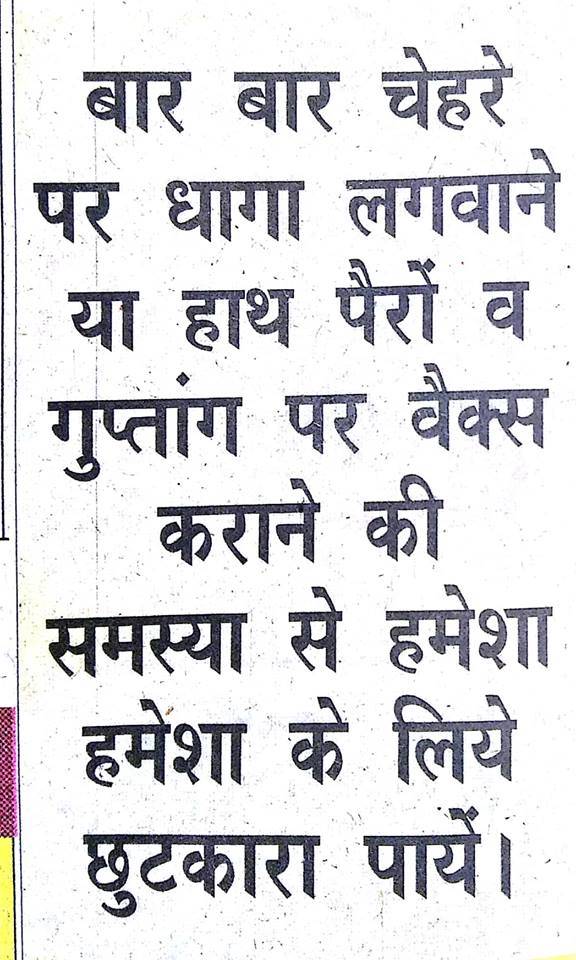 बार बार चेहरे
पर धागा लगवाने
या हाथ पैरों व
गुप्तांग पर वैक्स
कराने की
समस्या से हमेशा
हमेशा के लिये
छुटकारा पायें।